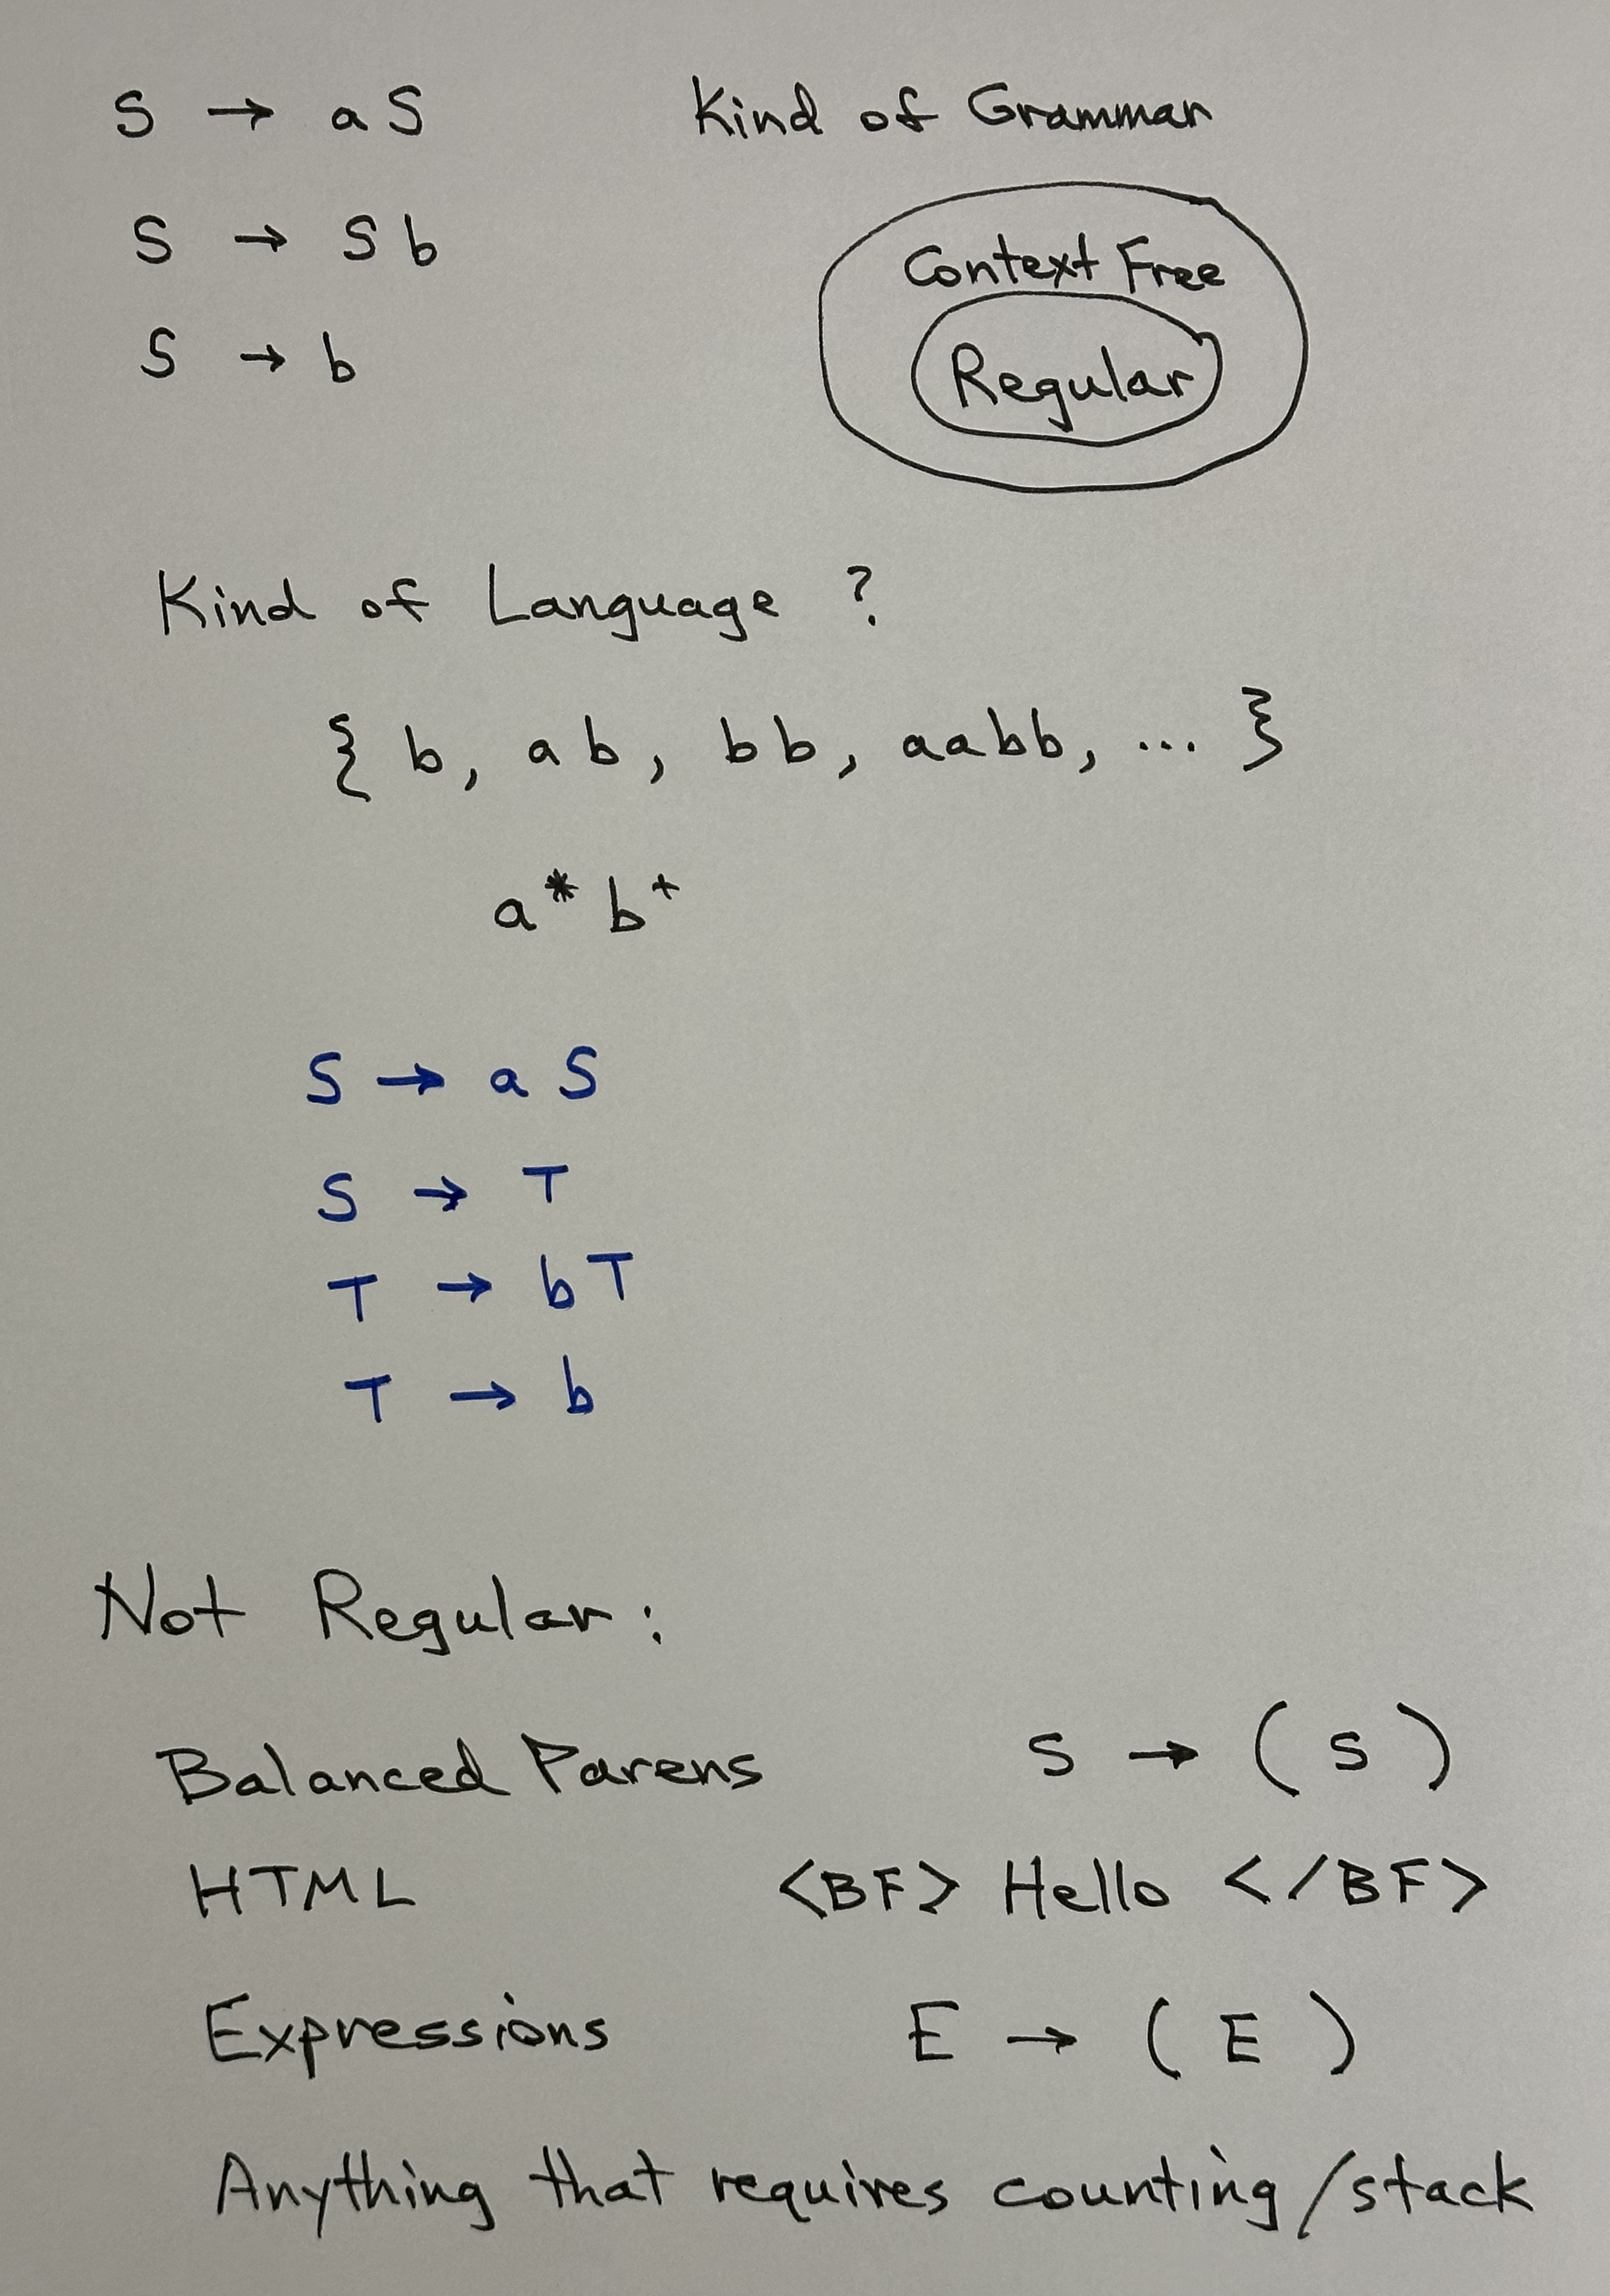 S → aS Kind of Grammar
S → Sb
Context Free
S → b
Regular
Kind of Language ?
{ b, ab, bb, aabb, ... }
a* b+
S → a S
S → T
T → bT
T → b
Not Regular:
Balanced Parens S → ( S )
HTML <BF> Hello </BF>
Expressions E → ( E )
Anything that requires counting/stack